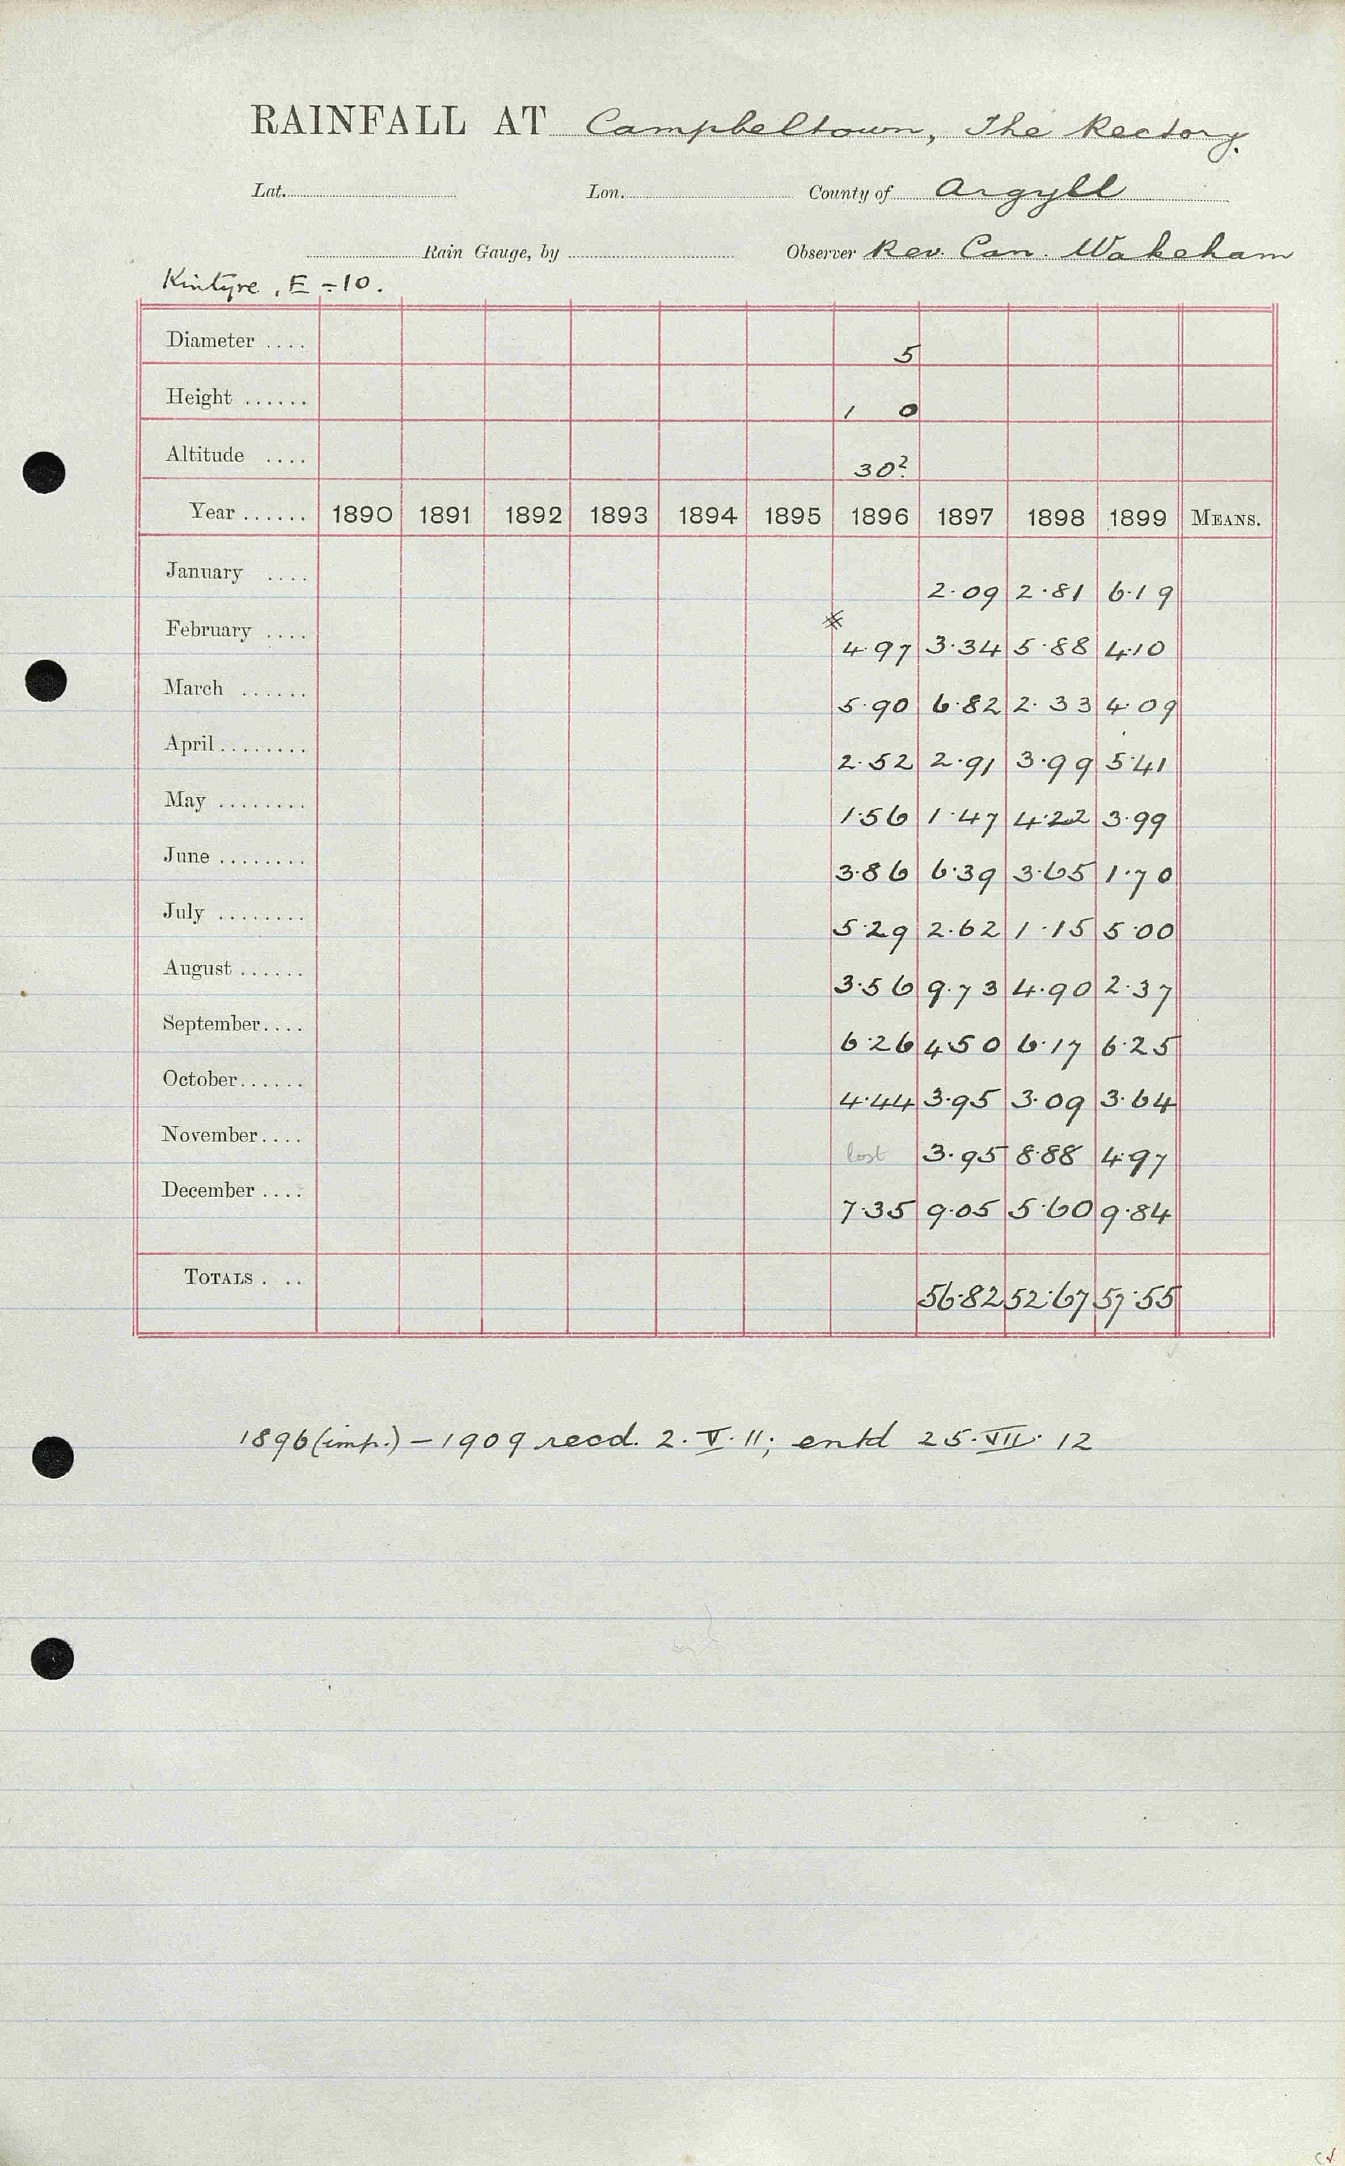 RAINFALL AT Campbeltown, The Rectory.
Lat. Lon. County of Argyll
Rain Gauge, by Observer Rev. Can. Wakeham
Kintyre, E ÷ 10.
Diameter .... 5
Height ...... 1 0
Altitude .... 30?
Year ...... 1890 1891 1892 1893 1894 1895 1896 1897 1898 1899 MEANS.
January .... 2.09 2.81 6.19
February .... * 4.97 3.34 5.88 4.10
March ...... 5.90 6.82 2.33 4.09
April ........ 2.52 2.91 3.99 5.41
May ........ 1.56 1.47 4.22 3.99
June ........ 3.86 6.39 3.65 1.70
July ........ 5.29 2.62 1.15 5.00
August ...... 3.56 9.73 4.90 2.37
September.... 6.26 4.50 6.17 6.25
October...... 4.44 3.95 3.09 3.64
November.... lost 3.95 8.88 4.97
December .... 7.35 9.05 5.60 9.84
TOTALS . .. 56.82 52.67 57.55
1896 (imp.) – 1909 recd. 2.V.11; entd 25.VII.12